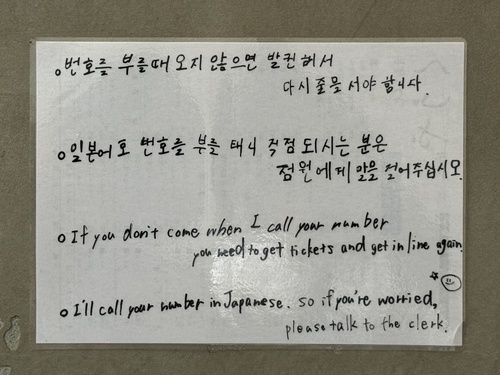 번호를 부를때 오지 않으면 발권해서
다시 줄을 서야 합니다.
일본어로 번호를 부를 테니 걱정 되시는 분은
점원에게 말을 걸어주십시오.
If you don't come when I call your number
you need to get tickets and get in line again.
I'll call your number in Japanese. so if you're worried,
please talk to the clerk.